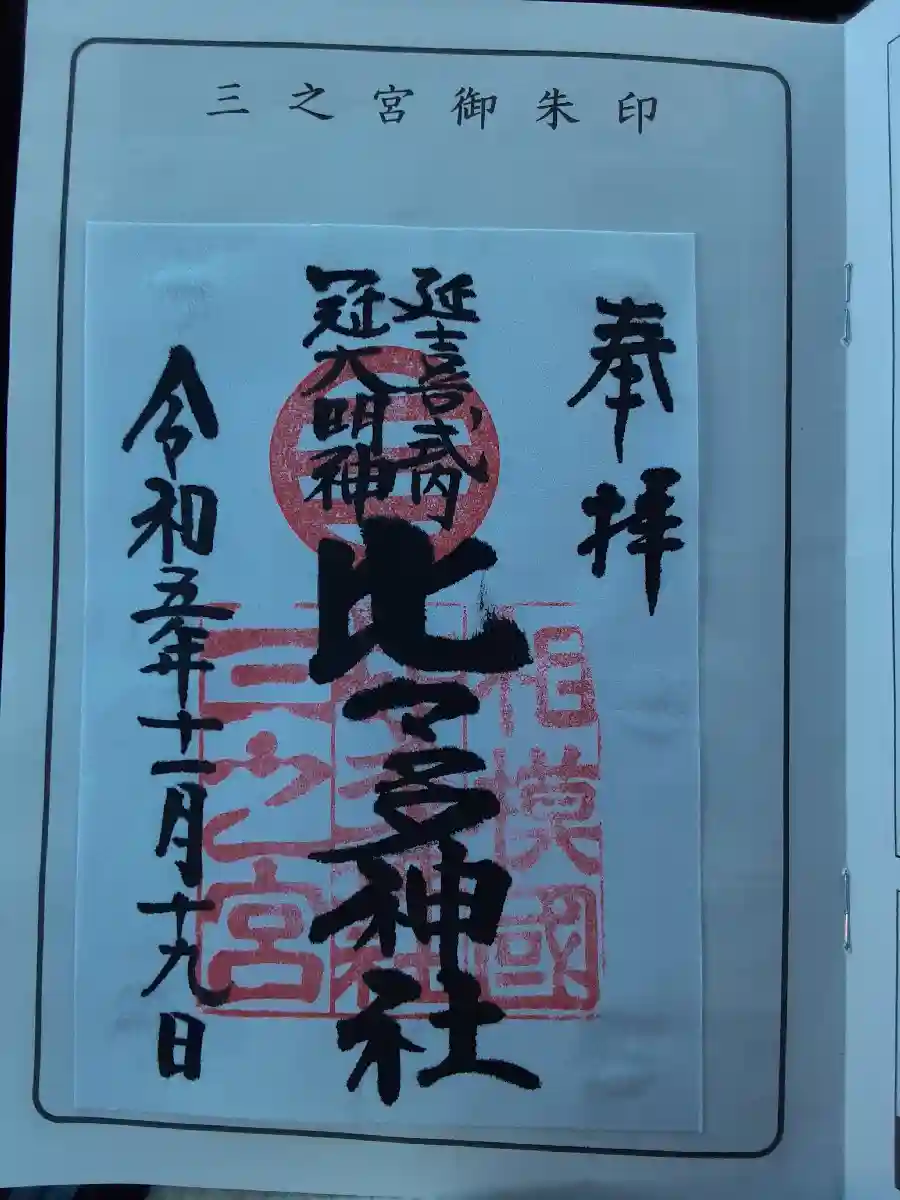 三之宮御朱印
奉拝
延喜式内
冠大明神
比々多神社
令和五年十一月十九日
三
相模國
三之宮